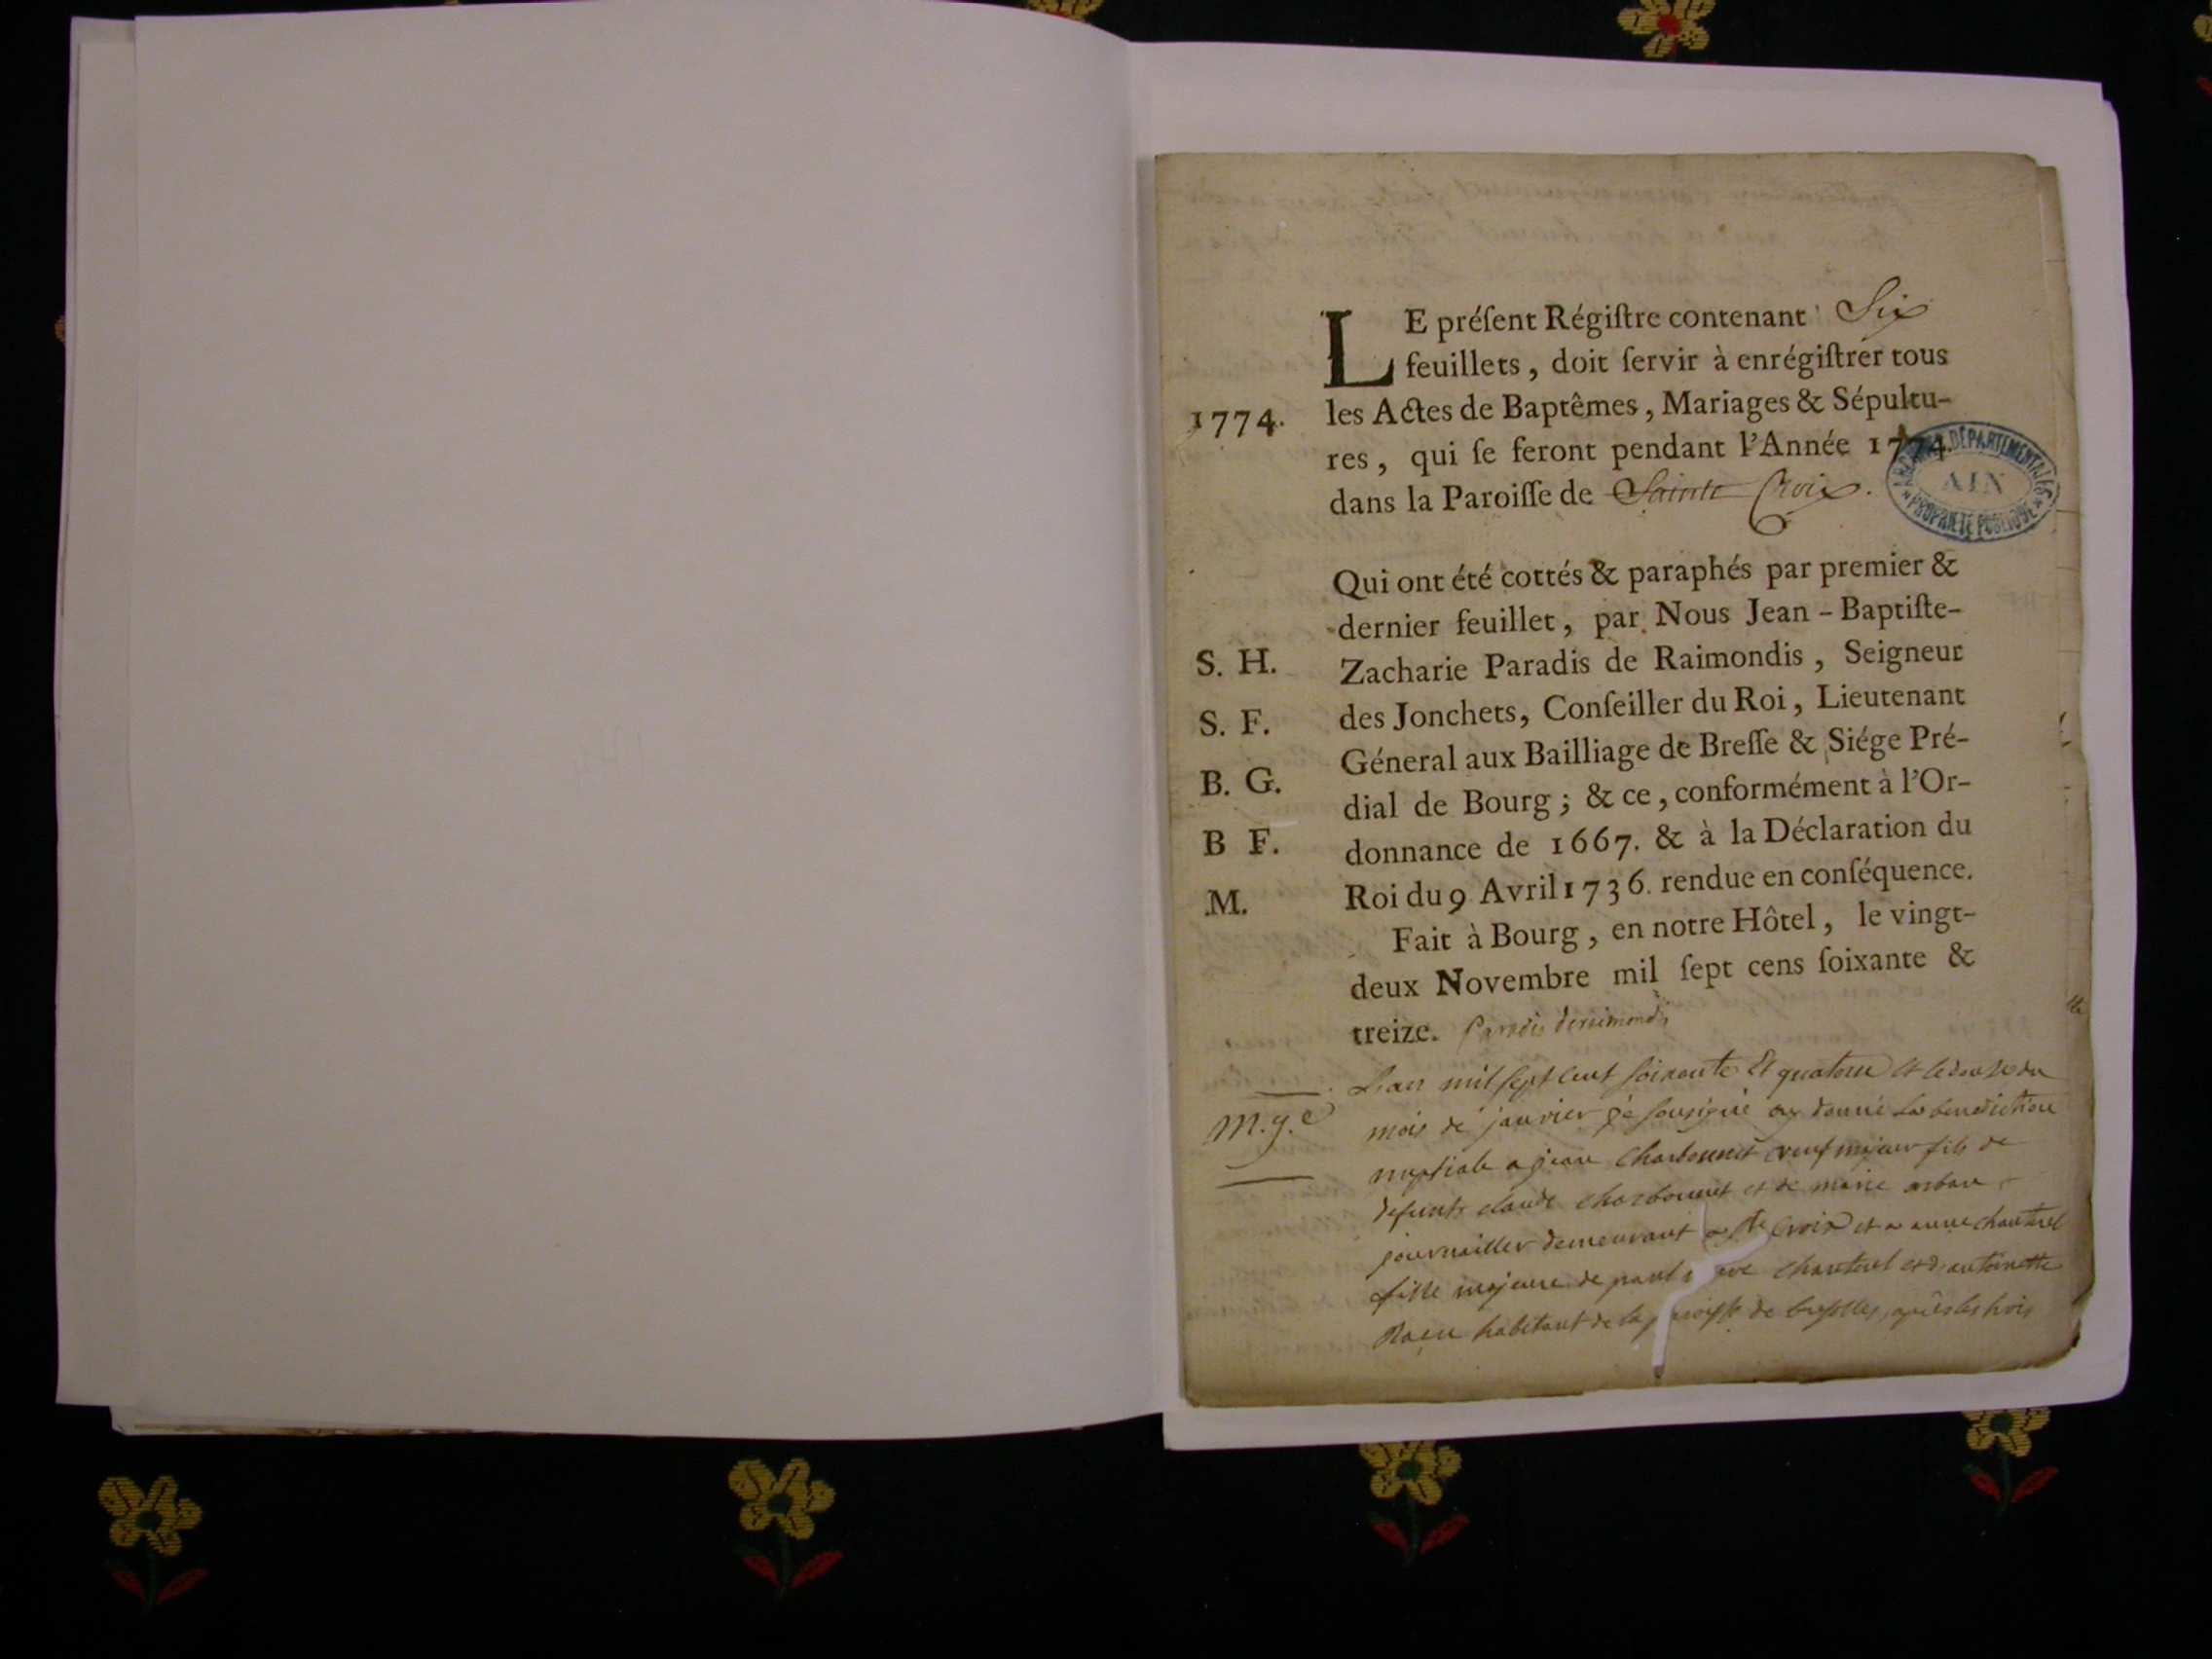 LE préſent Régiſtre contenant Six
feuillets, doit ſervir à enrégiſtrer tous
1774. les Actes de Baptêmes, Mariages & Sépultu-
res, qui ſe feront pendant l'Année 1774.
dans la Paroiſſe de Sainte Croix.
ARCHIVES DÉPARTEMENTALES
AIN
* PROPRIÉTÉ PUBLIQUE *
Qui ont été cottés & paraphés par premier &
dernier feuillet, par Nous Jean-Baptiſte-
S. H. Zacharie Paradis de Raimondis, Seigneur
S. F. des Jonchets, Conſeiller du Roi, Lieutenant
Géneral aux Bailliage de Breſſe & Siége Pré-
B. G. dial de Bourg; & ce, conformément à l'Or-
B F. donnance de 1667. & à la Déclaration du
M. Roi du 9 Avril 1736. rendue en conſéquence.
Fait à Bourg, en notre Hôtel, le vingt-
deux Novembre mil ſept cens ſoixante &
treize. Paradis deraimondis
L'an mil sept cent soixante Et quatorze et le douse du
M. g. e mois de janvier je sousigné ay donné la benediction
nuptiale a jean Charbonnet veuf majeur fils de
defunts claude charbonnet et de marie
journailler demeurant a ste Croix et a anne chanterel
fille majeure de chanterel et d'antoinette
habitant de la de après les trois